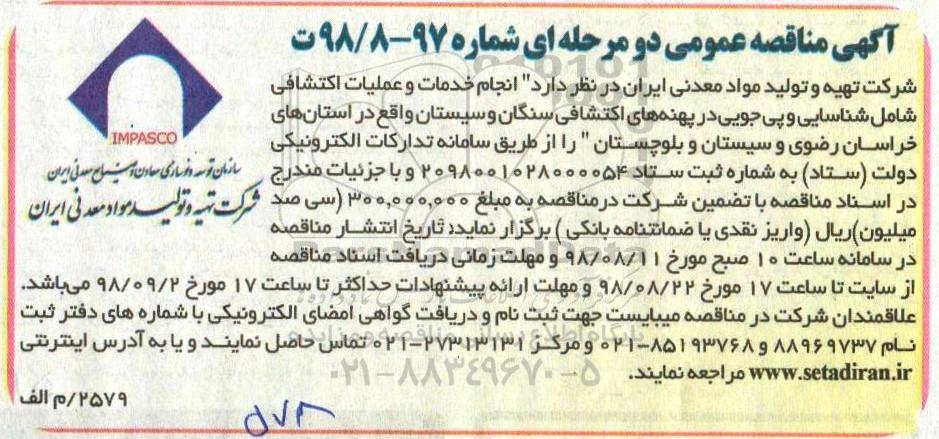 آگهی مناقصه عمومی دو مرحله ای شماره ۹۷-۹۸/۸ ت
شرکت تهیه و تولید مواد معدنی ایران در نظر دارد " انجام خدمات و عملیات اکتشافی
شامل شناسایی و پی جویی در پهنه‌های اکتشافی سنگان و سیستان واقع در استان‌های
خراسان رضوی و سیستان و بلوچستان " را از طریق سامانه تدارکات الکترونیکی
دولت (ستاد) به شماره ثبت ستاد ۲۰۹۸۰۰۱۰۲۸۰۰۰۰۵۴ و با جزئیات مندرج
در اسناد مناقصه با تضمین شرکت در مناقصه به مبلغ ۳۰۰,۰۰۰,۰۰۰ (سی صد
میلیون) ریال (واریز نقدی یا ضمانتنامه بانکی ) برگزار نماید: تاریخ انتشار مناقصه
در سامانه ساعت ۱۰ صبح مورخ ۹۸/۰۸/۱۱ و مهلت زمانی دریافت اسناد مناقصه
از سایت تا ساعت ۱۷ مورخ ۹۸/۰۸/۲۲ و مهلت ارائه پیشنهادات حداکثر تا ساعت ۱۷ مورخ ۹۸/۰۹/۲ می‌باشد.
علاقمندان شرکت در مناقصه میبایست جهت ثبت نام و دریافت گواهی امضای الکترونیکی با شماره های دفتر ثبت
نام ۸۸۹۶۹۷۳۷ و ۸۵۱۹۳۷۶۸-۰۲۱ و مرکز ۲۷۳۱۳۱۳۱-۰۲۱ تماس حاصل نمایند و یا به آدرس اینترنتی
www.setadiran.ir مراجعه نمایند.
۲۵۷۹/م الف
IMPASCO
سازمان توسعه و نوسازی معادن و صنایع معدنی ایران
شرکت تهیه و تولید مواد معدنی ایران
ParsNamadData
پایگاه اطلاع رسانی مناقصه و مزایده
۰۲۱-۸۸۳۴۹۶۷۰-۵